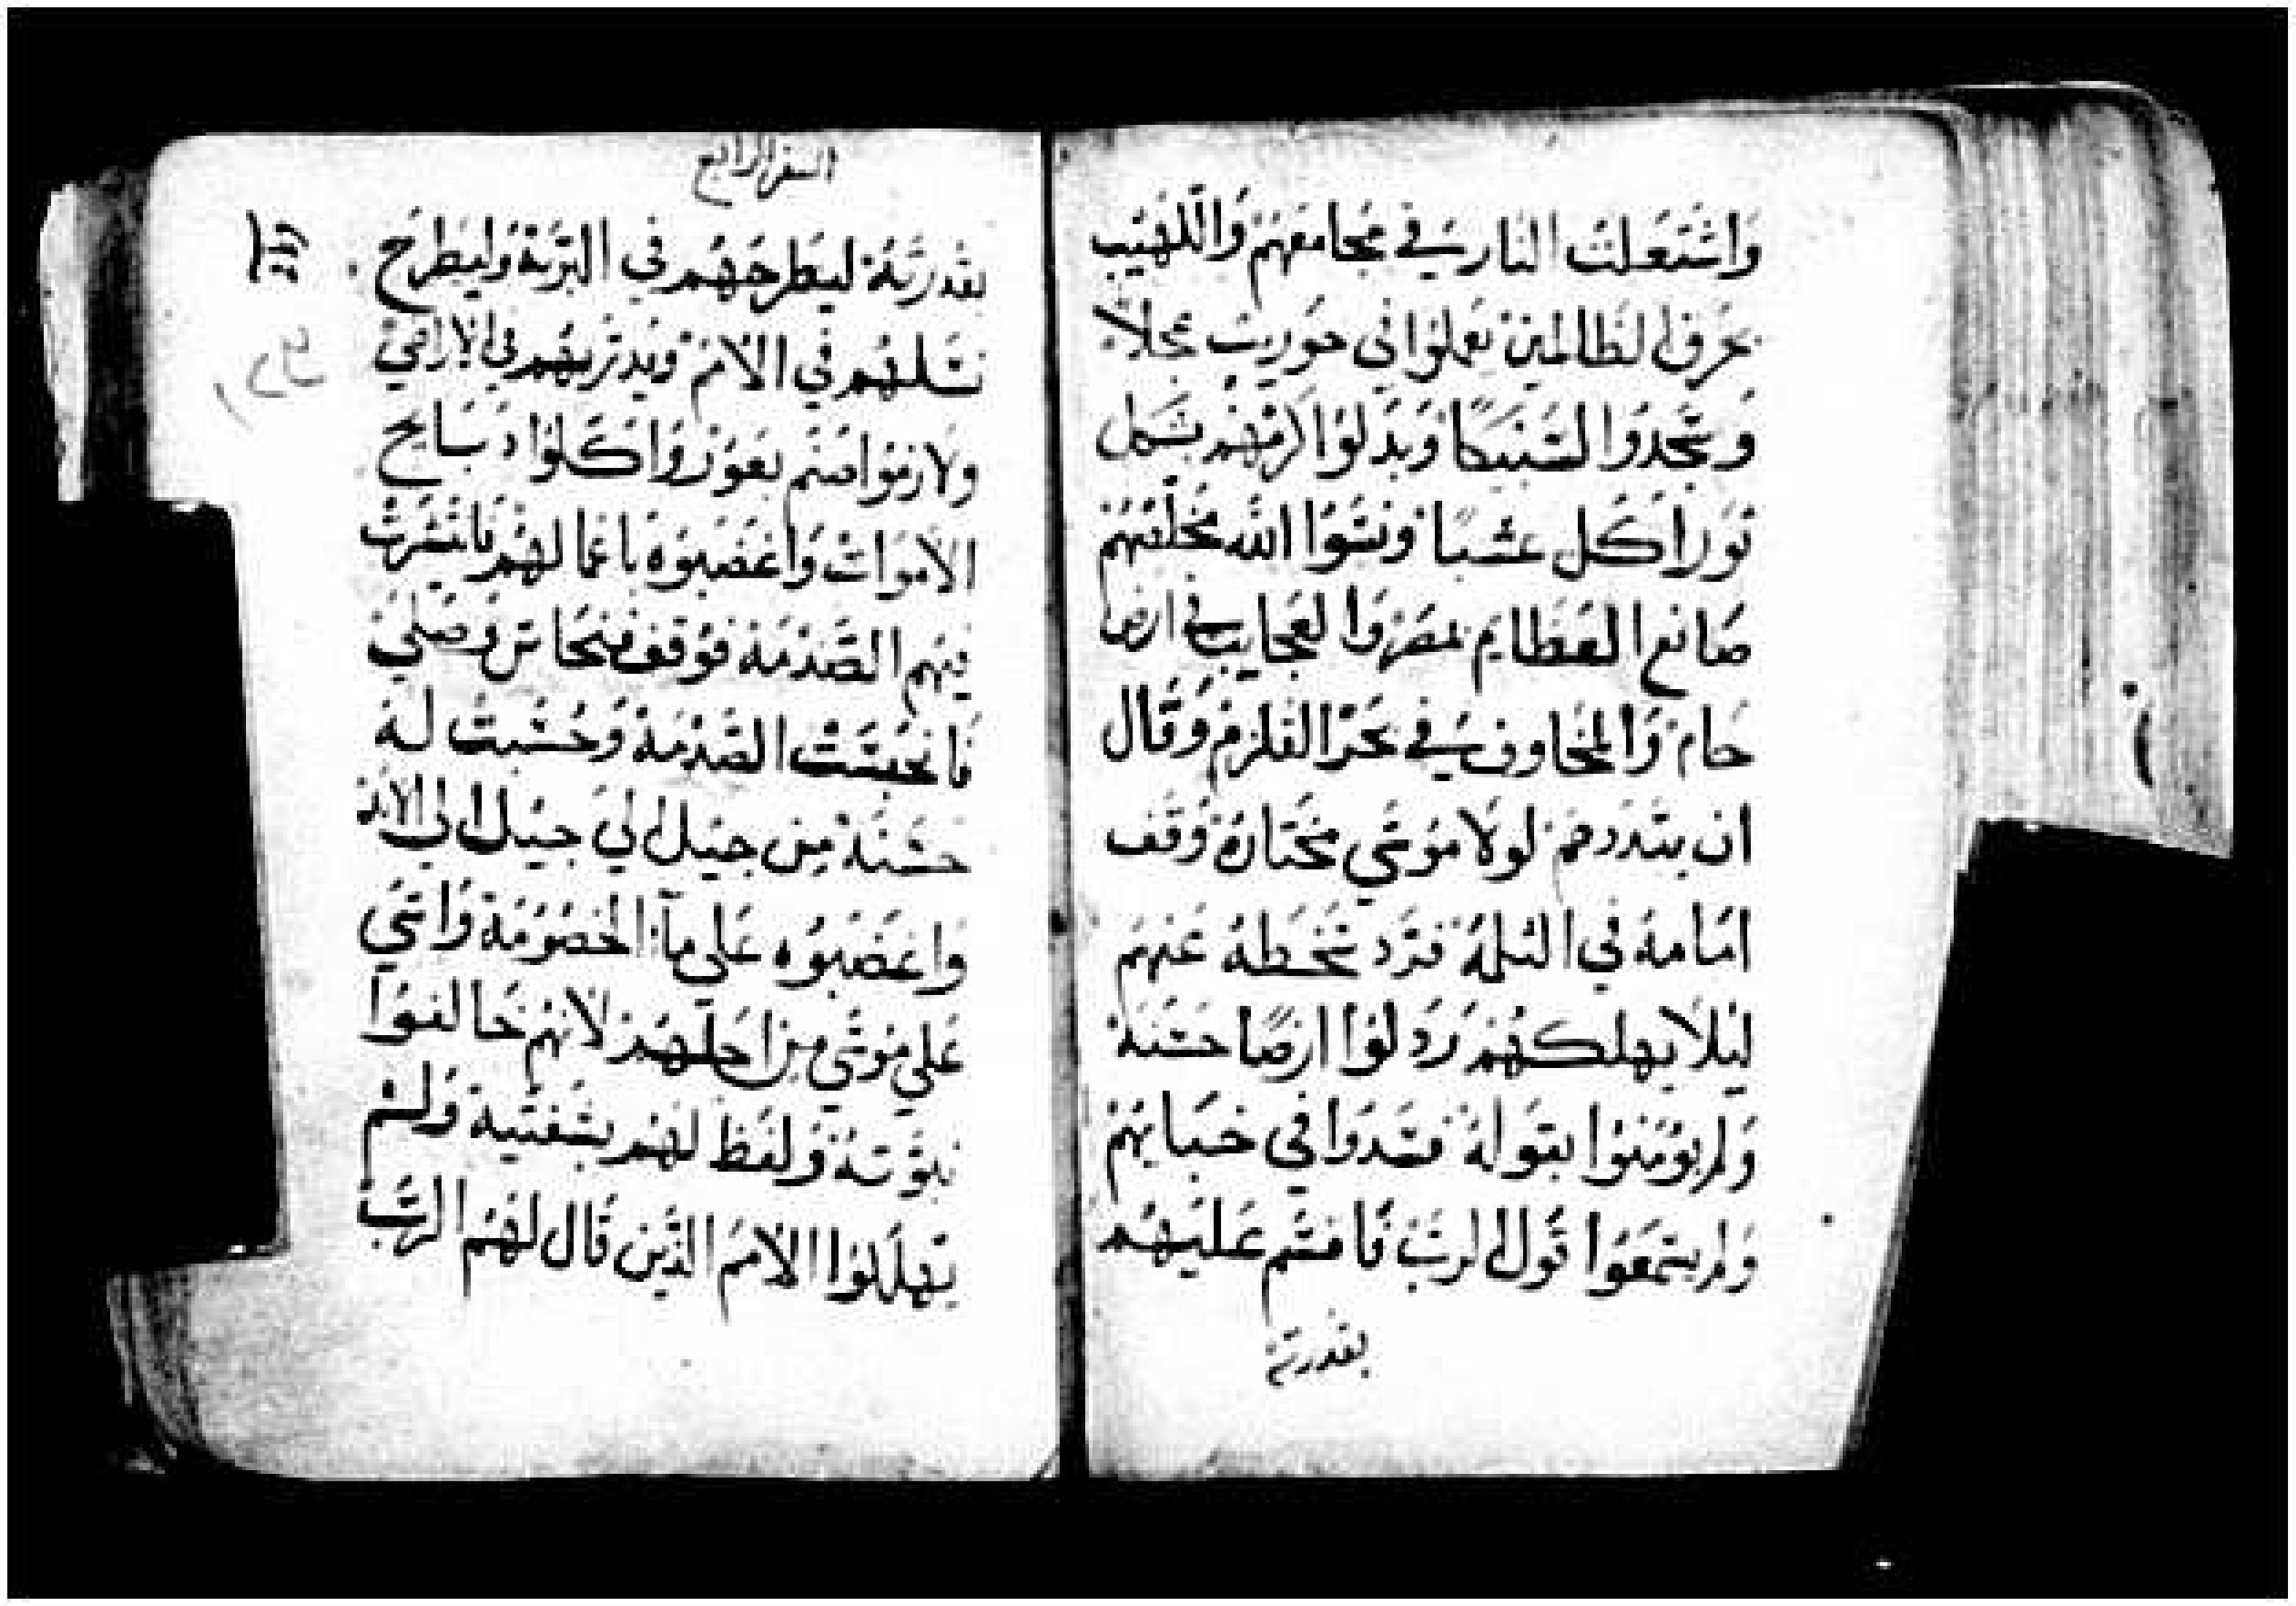 وَاشتَعَلت النار في مجامعَهم وَاللّهيب
حَرق الظالمين تعملوا في حوريب عجلاً
وَسَجَدوَا لسَبيكا وَبدَلوا كرمَهم بشكل
ثورا كل عشباً ونسَوا الله مخلصهم
صَانع العَظايم بمصرَ وَالعَجايب في ارض
حَام وَالمخاوف في بحر القلزم وَقال
ان يبددهم لولا موسَى مختارهُ وَقف
امَامهُ في الثلمة فرَد سخطهُ عَنهم
ليُلا يهلكهُم رَدلوا ارضًا حسَنة
وَلم يوُمنوا بقوله فقمدوا في خبَايهم
وَلم يسمَعوا قول الرب فاقسَم عَليهُم
بقدرته
السفر الرابع
بقدرَتهُ ليطرحَهُم في البرَية وَليَطرَح
نسَلهُم في الامم وَيدريهُم في الاراضي
ولازموا صَنم بعَوز وَاكلوا دبَايح
الاموَات وَاغضَبوَه باعمالهُم فانتشرَت
فيهم الصَدمَة فوَقف فنحَاس وَصَلي
فانحبسَت الصَدمَة وَحُسَبت لهُ
حسَنَة من جيَل الي جيَل الي الابد
وَاغضَبوُه عَلي مآ الخصُومَة وَاتي
عَلي موُسَي من اجلهم لانهُم خَالفوا
نبوَتهُ وَلفظ لهُم بشفتيه وَلم
يهلَلوا الامم الذَين قال لهُم الربَ